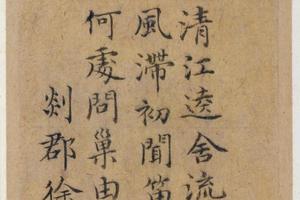 清江逺舍流
風滯初聞笛
何處問巢由
剡郡徐